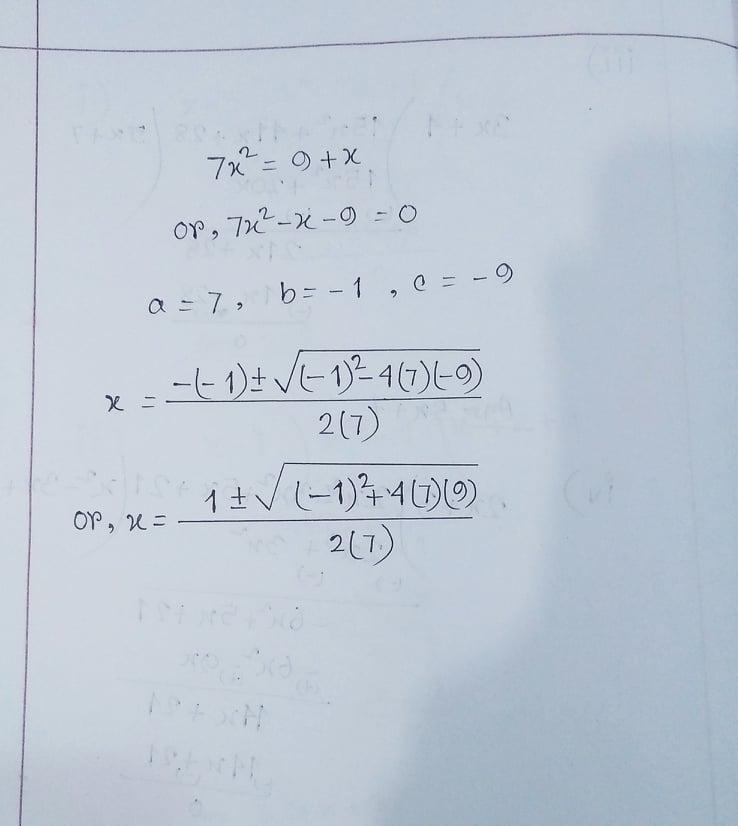 7x² = 9 + x
or, 7x² - x - 9 = 0
a = 7, b = -1, c = -9
x = \frac{-(-1) ± \sqrt{(-1)² - 4(7)(-9)}}{2(7)}
or, x = \frac{1 ± \sqrt{(-1)² + 4(7)(9)}}{2(7)}